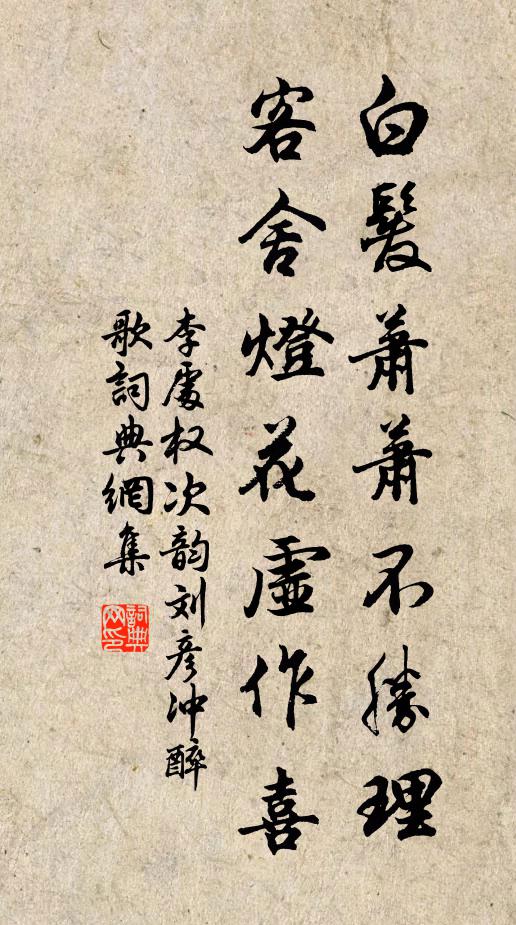 白髮蕭蕭不勝理
客舍燈花虛作喜
李處权次韵刘彦冲醉
歌詞典網集
詞典网印